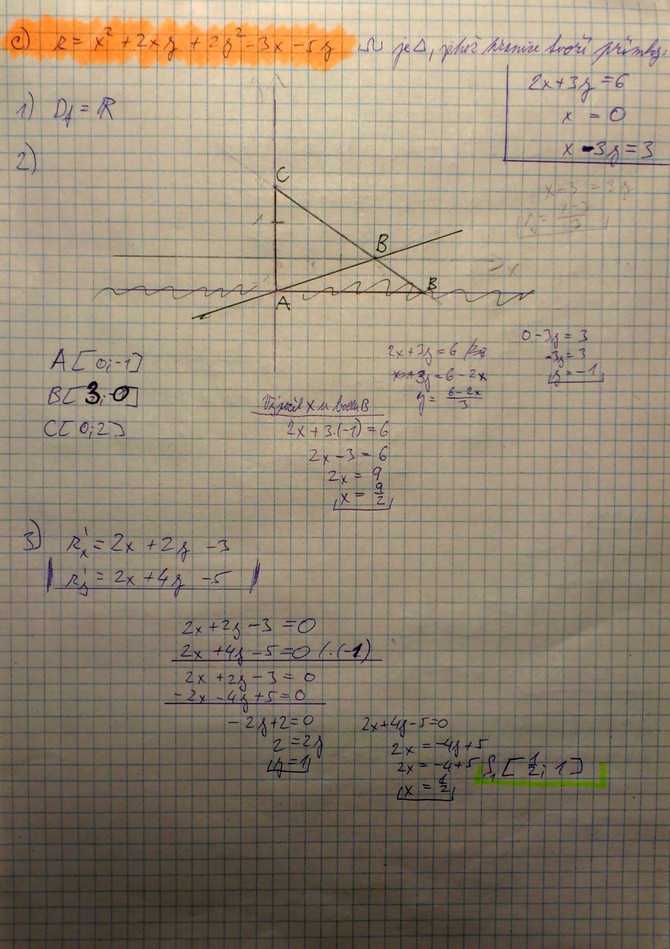 c) z = x² + 2xy + 2y² - 3x - 5y je Δ, jehož hranice tvoří přímky:
2x + 3y = 6
x = 0
x - 3y = 3
1) Df = R
2)
x - 3 = 3y
C
1
B
x
A
B
A[0;-1]
B[3;0]
C[0;2]
2x + 3y = 6
3y = 6 - 2x
y = \frac{6-2x}{3}
0 - 3y = 3
-3y = 3
y = -1
Výpočet x u bodu B
2x + 3.(-1) = 6
2x - 3 = 6
2x = 9
x = \frac{9}{2}
3) z'x = 2x + 2y - 3
z'y = 2x + 4y - 5
2x + 2y - 3 = 0
2x + 4y - 5 = 0 /.(-1)
2x + 2y - 3 = 0
-2x - 4y + 5 = 0
-2y + 2 = 0
2 = 2y
y = 1
2x + 4y - 5 = 0
2x = -4y + 5
2x = -4 + 5
x = \frac{1}{2}
S₁[\frac{1}{2}; 1]